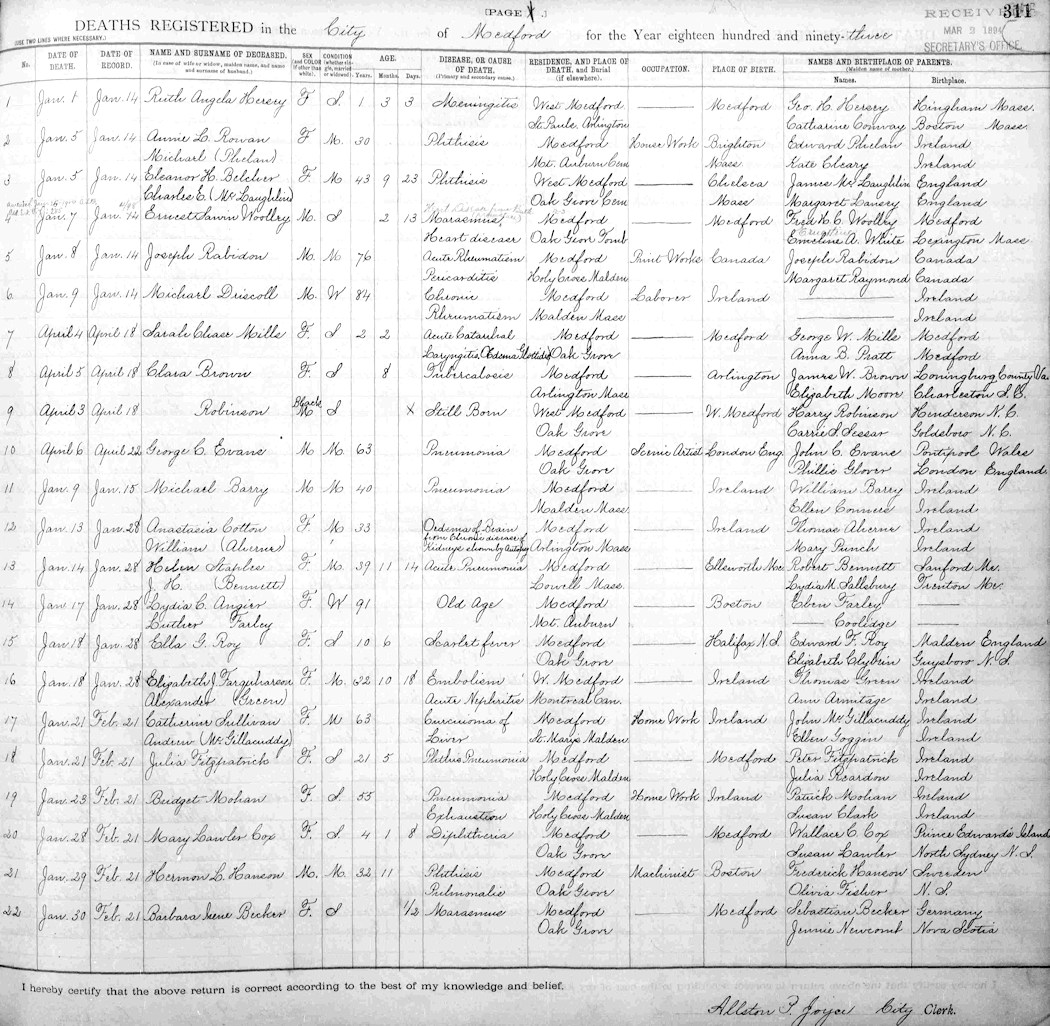 [PAGE 1.]
311
RECEIVED
MAR 2 1894
SECRETARY'S OFFICE
DEATHS REGISTERED in the City of Medford for the Year eighteen hundred and ninety-three
(USE TWO LINES WHERE NECESSARY.)
No. DATE OF DEATH. DATE OF RECORD. NAME AND SURNAME OF DECEASED. (In case of wife or widow, maiden name, and name and surname of husband.) SEX and COLOR (if other than white). CONDITION (whether single, married or widowed). AGE. Years. Months. Days. DISEASE, OR CAUSE OF DEATH. (Primary and secondary causes.) RESIDENCE, AND PLACE OF DEATH, and Burial (if elsewhere). OCCUPATION. PLACE OF BIRTH. NAMES AND BIRTHPLACE OF PARENTS. (Maiden name of mother.) Names. Birthplace.
1 Jan. 1 Jan. 14 Ruth Angela Hersey F. S. 1 3 3 Meningitis West Medford Medford Geo. H. Hersey Hingham Mass.
St. Pauls, Arlington Catharine Conway Boston Mass.
2 Jan. 5 Jan. 14 Annie L. Rowan F. M. 30 Phthisis Medford House Work Brighton Edward Phelan Ireland
Michael (Phelan) Mt. Auburn Cem Mass Kate Cleary Ireland
3 Jan. 5 Jan. 14 Eleanor H. Belcher F. M. 43 9 23 Phthisis West Medford Chelsea James McLaughlin England
Charles E. (McLaughlin) Oak Grove Cem Mass Margaret Lowery England
4 Jan. 7 Jan. 14 Ernest Irwin Woolley M. S 2 13 Marasmus, Medford Medford Fred H. C. Woolley Medford
Heart disease Oak Grove Tomb Emeline A. White Lexington Mass
5 Jan. 8 Jan. 14 Joseph Rabidon M. M 76 Acute Rheumatism Medford Print Works Canada Joseph Rabidon Canada
Pericarditis Holy Cross Malden Margaret Raymond Canada
6 Jan. 9 Jan. 14 Michael Driscoll M. W 84 Chronic Medford Laborer Ireland Ireland
Rheumatism Malden Mass Ireland
7 April 4 April 18 Sarah Chase Mills F. S 2 2 Acute Catarrhal Medford Medford George W. Mills Medford
Laryngitis, Œdema Glottidis Oak Grove Anna B. Pratt Medford
8 April 5 April 18 Clara Brown F. S 8 Tubercalosis Medford Arlington James W. Brown County Va.
Arlington Mass Elizabeth Moon Charleston S. C.
9 April 3 April 18 Robinson Black M S X Still Born West Medford W. Medford Harry Robinson Henderson N. C.
Oak Grove Carrie S. Sessar Goldsboro N. C.
10 April 6 April 22 George C. Evans M M. 63 Pneumonia Medford Scenic Artist London Eng. John C. Evans Pontipool Wales
Oak Grove Phillis Glover London England
11 Jan. 9 Jan. 15 Michael Barry M M 40 Pneumonia Medford Ireland William Barry Ireland
Malden Mass Ellen Conners Ireland
12 Jan. 13 Jan. 28 Anastasia Cotton F. M 33 Oedema of Brain Medford Ireland Thomas Aherne Ireland
from Chronic disease of
William (Aherne) Kidneys shown by Autopsy Arlington Mass Mary Punch Ireland
13 Jan. 14 Jan. 28 Helen Staples F. M. 39 11 14 Acute Pneumonia Medford Ellsworth Me. Robert Bennett Sanford Me.
J. H. (Bennett) Lowell Mass. Lydia M. Sallsbury Trenton Me.
14 Jan. 17 Jan. 28 Lydia C. Angier F. W 91 Old Age Medford Boston Eben Farley
Luther Farley Mt. Auburn Coolidge
15 Jan. 18 Jan. 28 Ella G. Roy F. S 10 6 Scarlet fever Medford Halifax N.S. Edward F. Roy Malden England
Oak Grove Elizabeth Clyburn Guysboro N. S.
16 Jan. 18 Jan. 28 Elizabeth J. Farquharson F. M. 32 10 18 Embolism W. Medford Ireland Thomas Green Ireland
Alexander (Green) Acute Nephritis Montreal Can. Ann Armitage Ireland
17 Jan. 21 Feb. 21 Catherine Sullivan F. M 63 Carcinoma of Medford Home Work Ireland John McGillacuddy Ireland
Andrew (McGillacuddy) Liver St. Marys Malden Ellen Goggin Ireland
18 Jan. 21 Feb. 21 Julia Fitzpatrick F. S 21 5 Phthis Pneumonia Medford Medford Peter Fitzpatrick Ireland
Holy Cross Malden Julia Reardon Ireland
19 Jan. 23 Feb. 21 Bridget Mohan F. S. 55 Pneumonia Medford Home Work Ireland Patrick Mohan Ireland
Exhaustion Holy Cross Malden Susan Clark Ireland
20 Jan. 28 Feb. 21 Mary Lawler Cox F. S 4 1 8 Diphtheria Medford Medford Wallace C. Cox Prince Edward's Island
Oak Grove Susan Lawler North Sydney N. S.
21 Jan. 29 Feb. 21 Hermon L. Hanson M. M. 32 11 Phthisis Medford Machinist Boston Frederick Hanson Sweden
Pulmonalis Oak Grove Olivia Fisher N. S.
22 Jan. 30 Feb. 21 Barbara Irene Becker F. S 1/2 Marasmus Medford Medford Sebastian Becker Germany
Oak Grove Jennie Newcomb Nova Scotia
I hereby certify that the above return is correct according to the best of my knowledge and belief.
Allston P. Joyce City Clerk.